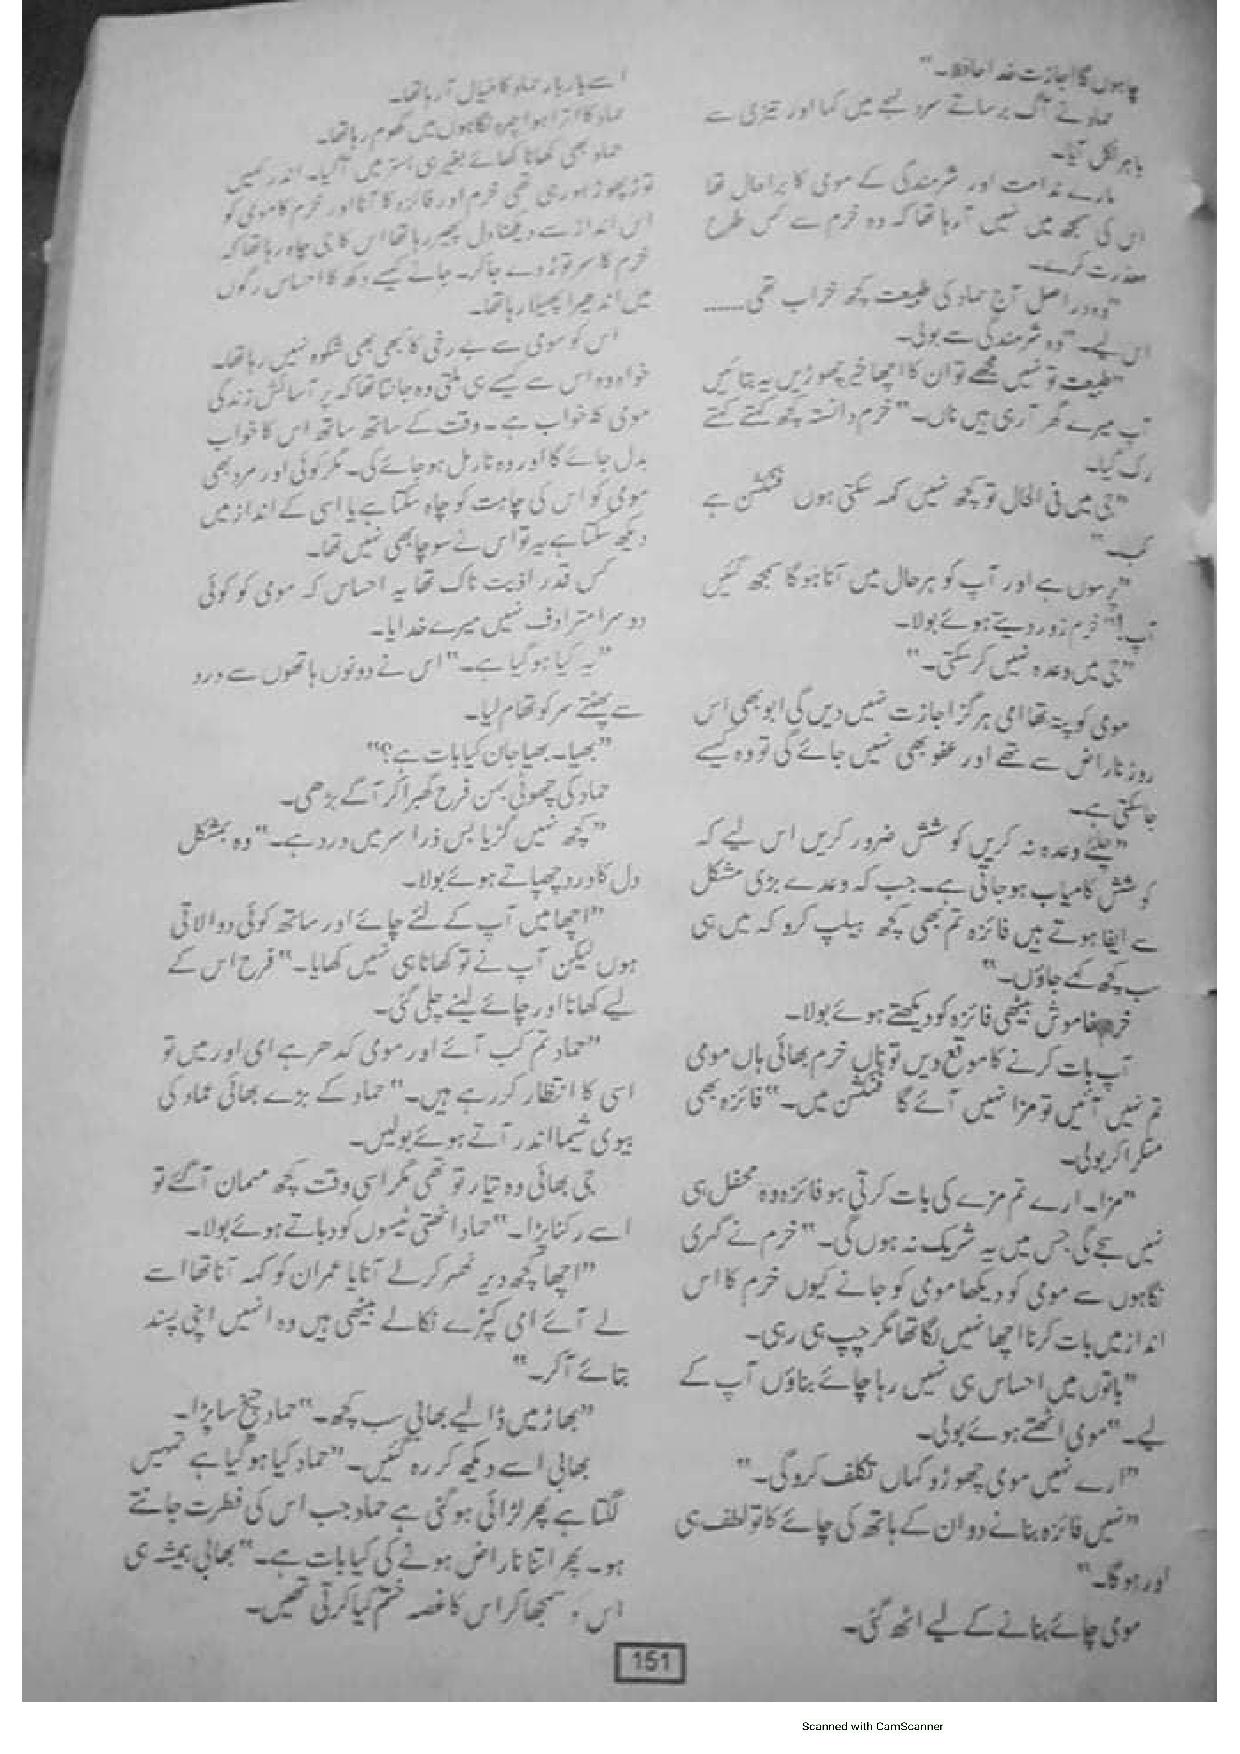 چاہوں گا اجازت خدا حافظ۔"
حماد نے آگ برساتے سرد لہجے میں کہا اور تیزی سے
باہر نکل گیا۔
مارے ندامت اور شرمندگی کے مومی کا برا حال تھا
اس کی سمجھ میں نہیں آرہا تھا کہ وہ خرم سے کس طرح
معذرت کرے۔
"وہ دراصل آج حماد کی طبیعت کچھ خراب تھی……
اس لیے۔" وہ شرمندگی سے بولی۔
"طبیعت تو نہیں مجھے تو ان کا اچھا خیر چھوڑیں یہ بتائیں
آپ میرے گھر آرہی ہیں ناں۔" خرم دانستہ کچھ کہتے کہتے
رک گیا۔
"جی میں فی الحال تو کچھ نہیں کہہ سکتی ہوں فنکشن ہے
کب۔"
"پرسوں ہے اور آپ کو ہر حال میں آنا ہوگا سمجھ گئیں
آپ!" خرم زور دیتے ہوئے بولا۔
"جی میں وعدہ نہیں کر سکتی۔"
مومی کو پتہ تھا امی ہرگز اجازت نہیں دیں گی ابو بھی اس
روز ناراض سے تھے اور عفو بھی نہیں جائے گی تو وہ کیسے
جا سکتی ہے۔
"چلئے وعدہ نہ کریں کوشش ضرور کریں اس لیے کہ
کوشش کامیاب ہو جاتی ہے۔ جب کہ وعدے بڑی مشکل
سے ایفا ہوتے ہیں فائزہ تم بھی کچھ ہیلپ کرو کہ میں ہی
سب کچھ کہے جاؤں۔"
خرم خاموش بیٹھی فائزہ کو دیکھتے ہوئے بولا۔
آپ بات کرنے کا موقع دیں تو ناں خرم بھائی ہاں مومی
تم نہیں آئیں تو مزا نہیں آئے گا فنکشن میں۔" فائزہ بھی
مسکرا کر بولی۔
"مزا۔ ارے تم مزے کی بات کرتی ہو فائزہ وہ محفل ہی
نہیں سجے گی جس میں یہ شریک نہ ہوں گی۔" خرم نے گہری
نگاہوں سے مومی کو دیکھا مومی کو جانے کیوں خرم کا اس
انداز میں بات کرنا اچھا نہیں لگا تھا مگر چپ ہی رہی۔
"باتوں میں احساس ہی نہیں رہا چائے بناؤں آپ کے
لیے۔" مومی اٹھتے ہوئے بولی۔
"ارے نہیں مومی چھوڑو کہاں تکلف کرو گی۔"
"نہیں فائزہ بنانے دو ان کے ہاتھ کی چائے کا تو لطف ہی
اور ہوگا۔"
مومی چائے بنانے کے لیے اٹھ گئی۔
اسے بار بار حماد کا خیال آرہا تھا۔
حماد کا اترا ہوا چہرہ نگاہوں میں گھوم رہا تھا۔
حماد بھی کھانا کھائے بغیر ہی بستر میں آگیا۔ اندر کہیں
توڑ پھوڑ ہو رہی تھی خرم اور فائزہ کا آنا اور خرم کا مومی کو
اس انداز سے دیکھنا دل چیر رہا تھا اس کا جی چاہ رہا تھا کہ
خرم کا سر توڑ دے جا کر۔ جانے کیسے دکھ کا احساس رگوں
میں اندھیرا پھیلا رہا تھا۔
اس کو مومی سے بے رخی کا کبھی بھی شکوہ نہیں رہا تھا۔
خواہ وہ اس سے کیسے ہی ملتی وہ جانتا تھا کہ پر آسائش زندگی
مومی کا خواب ہے۔ وقت کے ساتھ ساتھ اس کا خواب
بدل جائے گا اور وہ نارمل ہو جائے گی۔ مگر کوئی اور مرد بھی
مومی کو اس کی چاہت کو چاہ سکتا ہے یا اسی کے انداز میں
دیکھ سکتا ہے یہ تو اس نے سوچا بھی نہیں تھا۔
کس قدر اذیت ناک تھا یہ احساس کہ مومی کو کوئی
دوسرا مترادف نہیں میرے خدایا۔
"یہ کیا ہوگیا ہے۔" اس نے دونوں ہاتھوں سے درد
سے پھٹتے سر کو تھام لیا۔
"بھیا۔ بھیا جان کیا بات ہے؟"
حماد کی چھوٹی بہن فرح گھبرا کر آگے بڑھی۔
"کچھ نہیں گڑیا بس ذرا سر میں درد ہے۔" وہ بمشکل
دل کا درد چھپاتے ہوئے بولا۔
"اچھا میں آپ کے لئے چائے اور ساتھ کوئی دوا لاتی
ہوں لیکن آپ نے تو کھانا ہی نہیں کھایا۔" فرح اس کے
لیے کھانا اور چائے لینے چلی گئی۔
"حماد تم کب آئے اور مومی کدھر ہے امی اور میں تو
اسی کا انتظار کر رہے ہیں۔" حماد کے بڑے بھائی عماد کی
بیوی شیما اندر آتے ہوئے بولیں۔
جی بھابی وہ تیار تو تھی مگر اسی وقت کچھ مہمان آگئے تو
اسے رکنا پڑا۔" حماد اٹھتی ٹیسوں کو دباتے ہوئے بولا۔
"اچھا کچھ دیر ٹھہر کر لے آنا یا عمران کو کہہ آنا تھا اسے
لے آئے امی کپڑے نکالے بیٹھی ہیں وہ انہیں اپنی پسند
بتائے آکر۔"
"بھاڑ میں ڈالیے بھابی سب کچھ۔" حماد چیخ سا پڑا۔
بھابی اسے دیکھ کر رہ گئیں۔ "حماد کیا ہوگیا ہے تمہیں
لگتا ہے پھر لڑائی ہو گئی ہے حماد جب اس کی فطرت جانتے
ہو۔ پھر اتنا ناراض ہونے کی کیا بات ہے۔" بھابی ہمیشہ ہی
اس کو سمجھا کر اس کا غصہ ختم کیا کرتی تھیں۔
151
Scanned with CamScanner